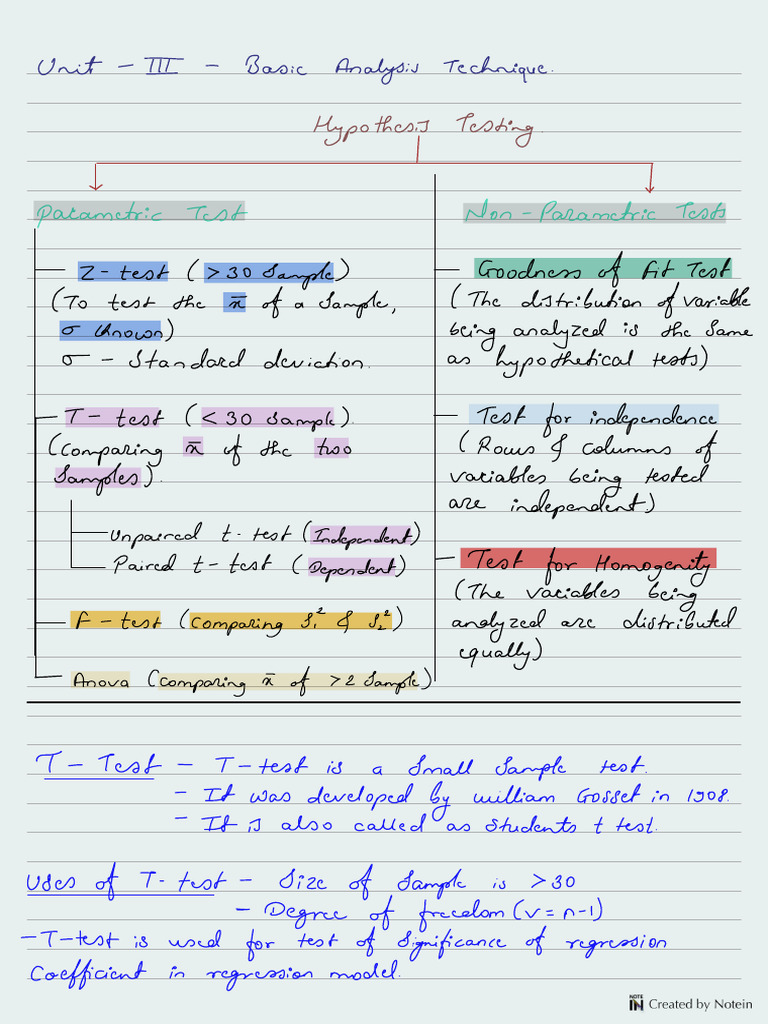 Unit - III - Basic Analysis Technique.
Hypothesis Testing.
Parametric Test
Z-test (>30 Sample)
(To test the x̄ of a sample,
σ known)
σ - Standard deviction.
T-test (<30 Sample).
(Comparing x̄ of the two
Samples).
Unpaired t-test (Independent)
Paired t-test (Dependent)
F-test (Comparing S₁² & S₂²)
Anova (Comparing x̄ of >2 Sample)
Non-Parametric Tests
Goodness of Fit Test
(The distribution of variable
being analyzed is the same
as hypothetical tests)
Test for independence
(Rows & columns of
variables being tested
are independent)
Test for Homogenity
(The variables being
analyzed are distributed
equally)
T-Test - T-test is a small sample test.
- It was developed by william Gosset in 1908.
- It is also called as students t test.
Uses of T-test - Size of sample is >30
- Degree of freedom (v=n-1)
-T-test is used for test of significance of regression
Coefficient in regression model.
NOTE IN Created by Notein